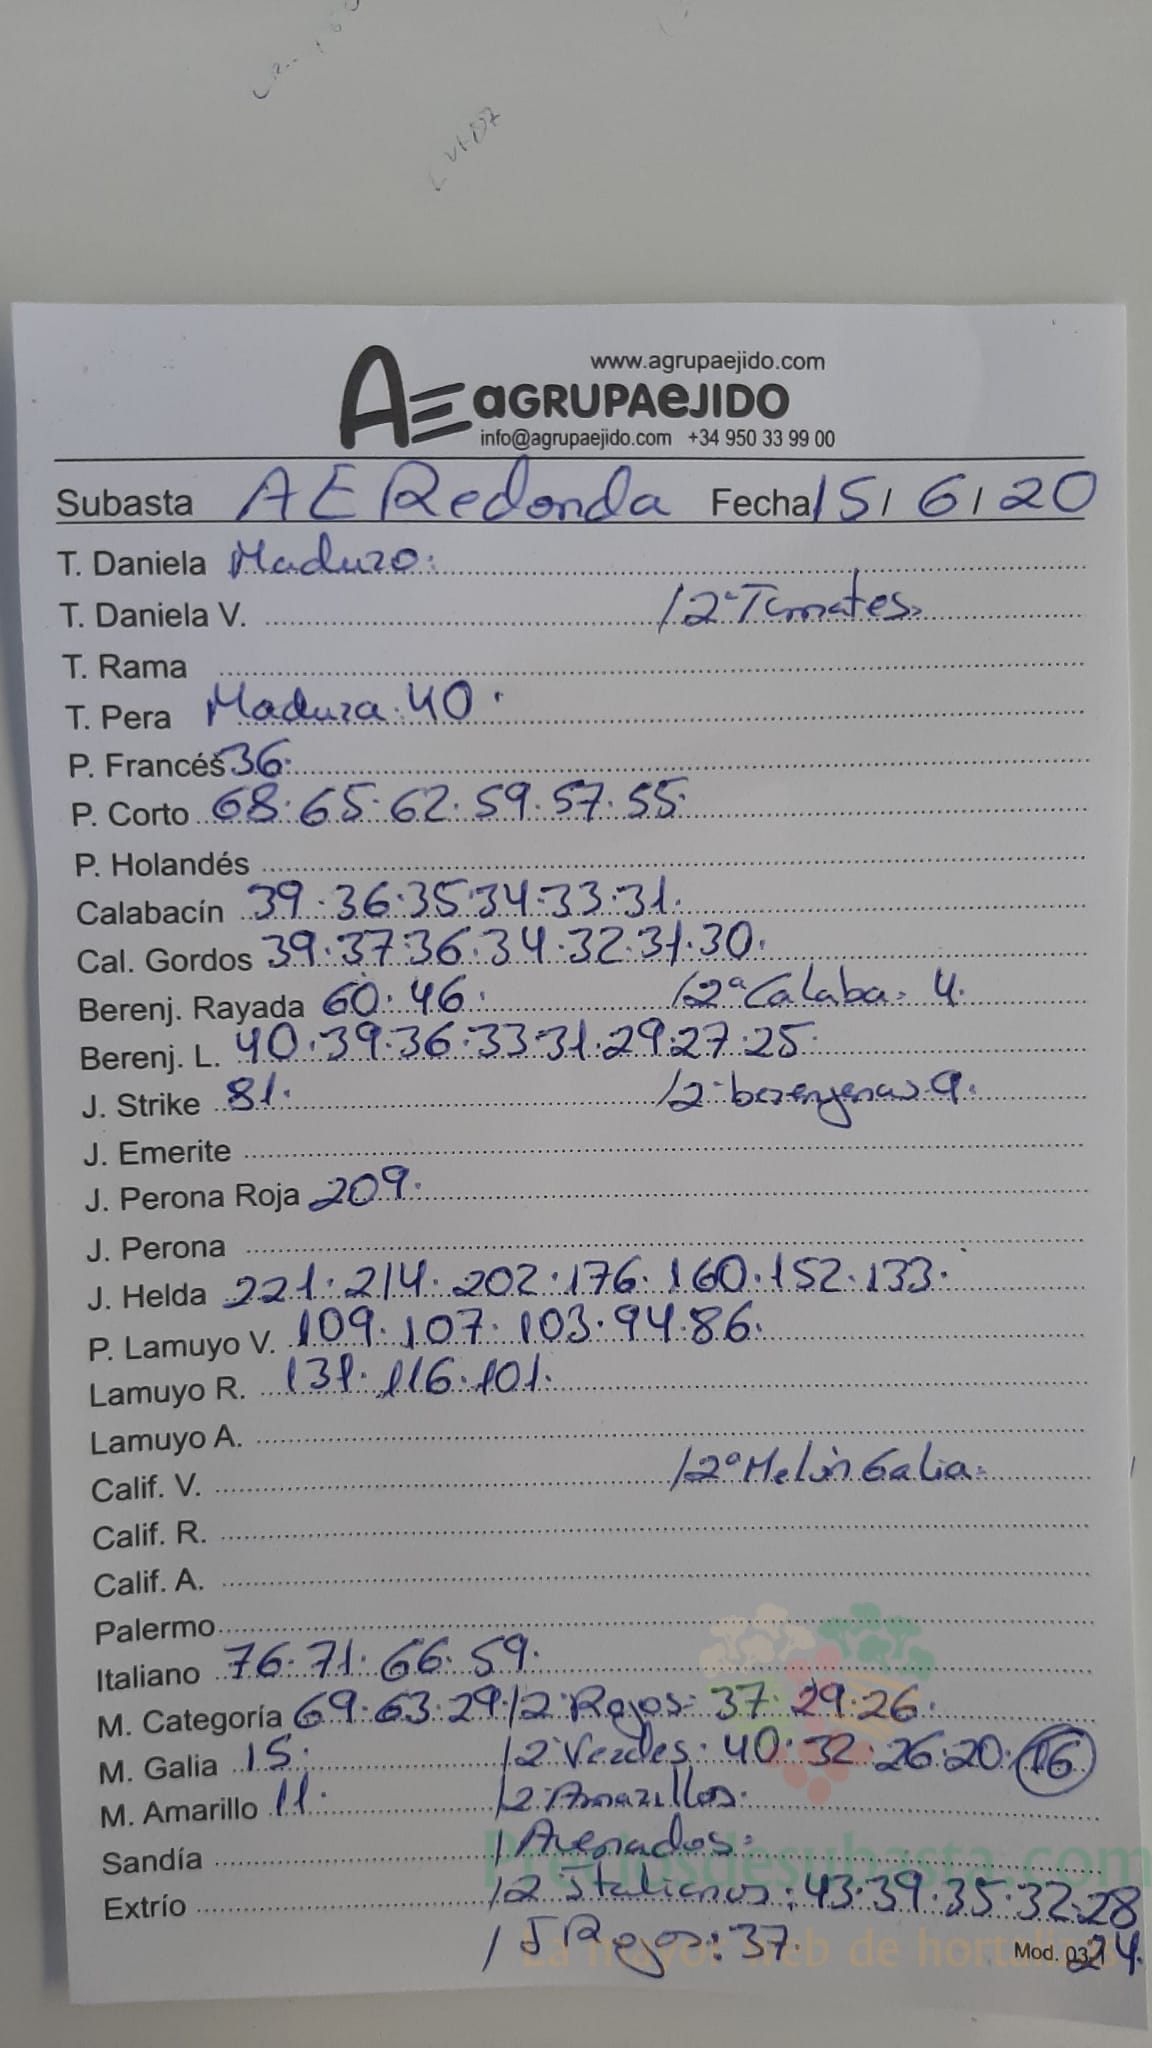 www.agrupaejido.com
AE aGRUPAeJIDO
info@agrupaejido.com +34 950 33 99 00
Subasta AE Redonda Fecha 15/6/20
T. Daniela Maduro.
T. Daniela V. /2ª Tomates.
T. Rama
T. Pera Madura. 40.
P. Francés 36.
P. Corto 68. 65. 62. 59. 57. 55.
P. Holandés
Calabacín 39. 36. 35. 34. 33. 31.
Cal. Gordos 39. 37. 36. 34. 32. 31. 30.
Berenj. Rayada 60. 46. /2ª Calaba. 4.
Berenj. L. 40. 39. 36. 33. 31. 29. 27. 25.
J. Strike 81. /2ª berenjenas 9.
J. Emerite
J. Perona Roja 209.
J. Perona
J. Helda 221. 214. 202. 176. 160. 152. 133.
P. Lamuyo V. 109. 107. 103. 94. 86.
Lamuyo R. 131. 116. 101.
Lamuyo A.
Calif. V. /2ª Melón Galia.
Calif. R.
Calif. A.
Palermo
Italiano 76. 71. 66. 59.
M. Categoría 69. 63. 29. /2ª Rojos: 37. 29. 26.
M. Galia 15. /2ª Verdes. 40. 32. 26. 20. 16
M. Amarillo 11. /2ª Amarillos.
Sandía / Asenados.
Preciosdesubasta.com
Extrío /2ª Italianos: 43. 39. 35. 32. 28
/ I Rojos: 37. 24.
La mayor web de hortalizas
Mod. 03